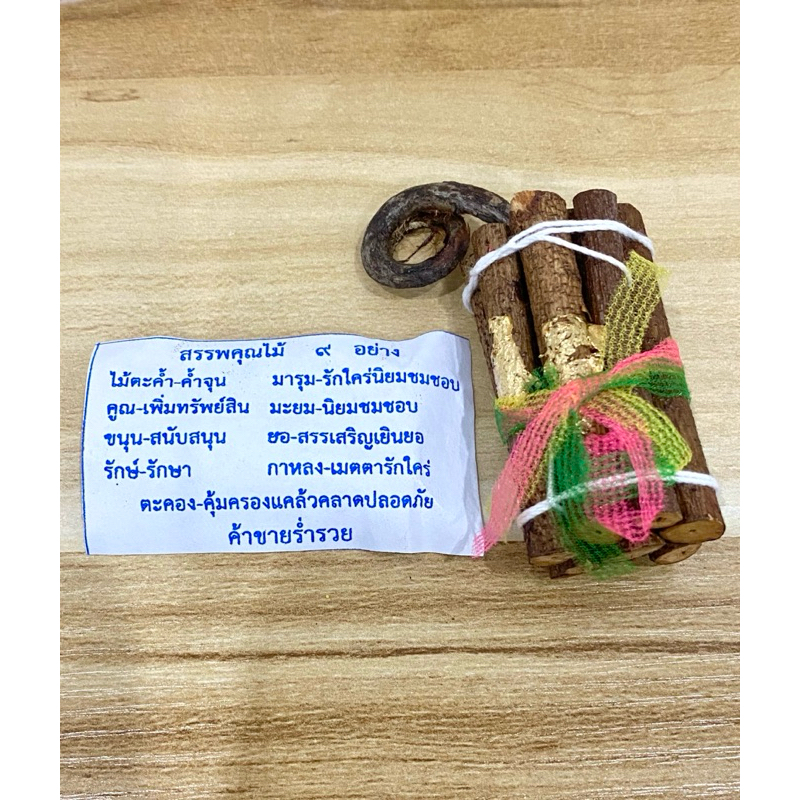 สรรพคุณไม้ ๙ อย่าง
ไม้ตะค้ำ-ค้ำจุน มารุม-รักใคร่นิยมชมชอบ
คูณ-เพิ่มทรัพย์สิน มะยม-นิยมชมชอบ
ขนุน-สนับสนุน ยอ-สรรเสริญเยินยอ
รักษ์-รักษา กาหลง-เมตตารักใคร่
ตะคอง-คุ้มครองแคล้วคลาดปลอดภัย
ค้าขายร่ำรวย